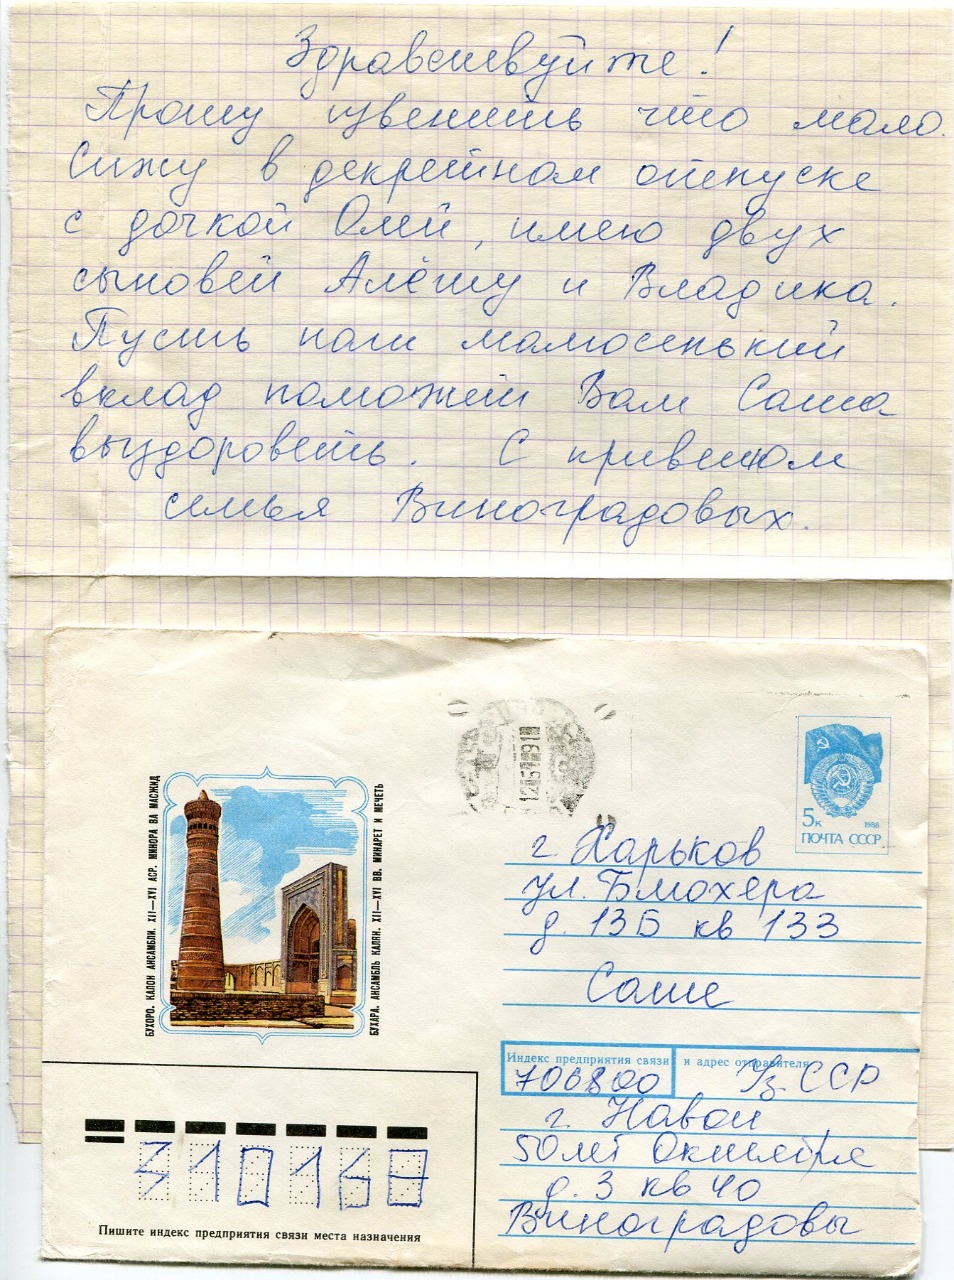 Здравствуйте!
Прошу извенить что мало.
Сижу в декретном отпуске
с дочкой Олей, имею двух
сыновей Алёшу и Владика.
Пусть наш малюсенький
вклад поможет Вам Саша
выздороветь. С приветом
семья Виноградовых.
БУХОРО. КАЛОН АНСАМБЛИ. XII—XVI АСР. МИНОРА ВА МАСЖИД
БУХАРА. АНСАМБЛЬ КАЛЯН. XII—XVI ВВ. МИНАРЕТ И МЕЧЕТЬ
5к 1988
ПОЧТА СССР
г. Харьков
ул. Блюхера
д. 13Б кв 133
Саше
Индекс предприятия связи и адрес отправителя
706800 Уз. ССР
г. Навои
50 лет Октября
д. 3 кв 40
Виноградовы
310168
Пишите индекс предприятия связи места назначения